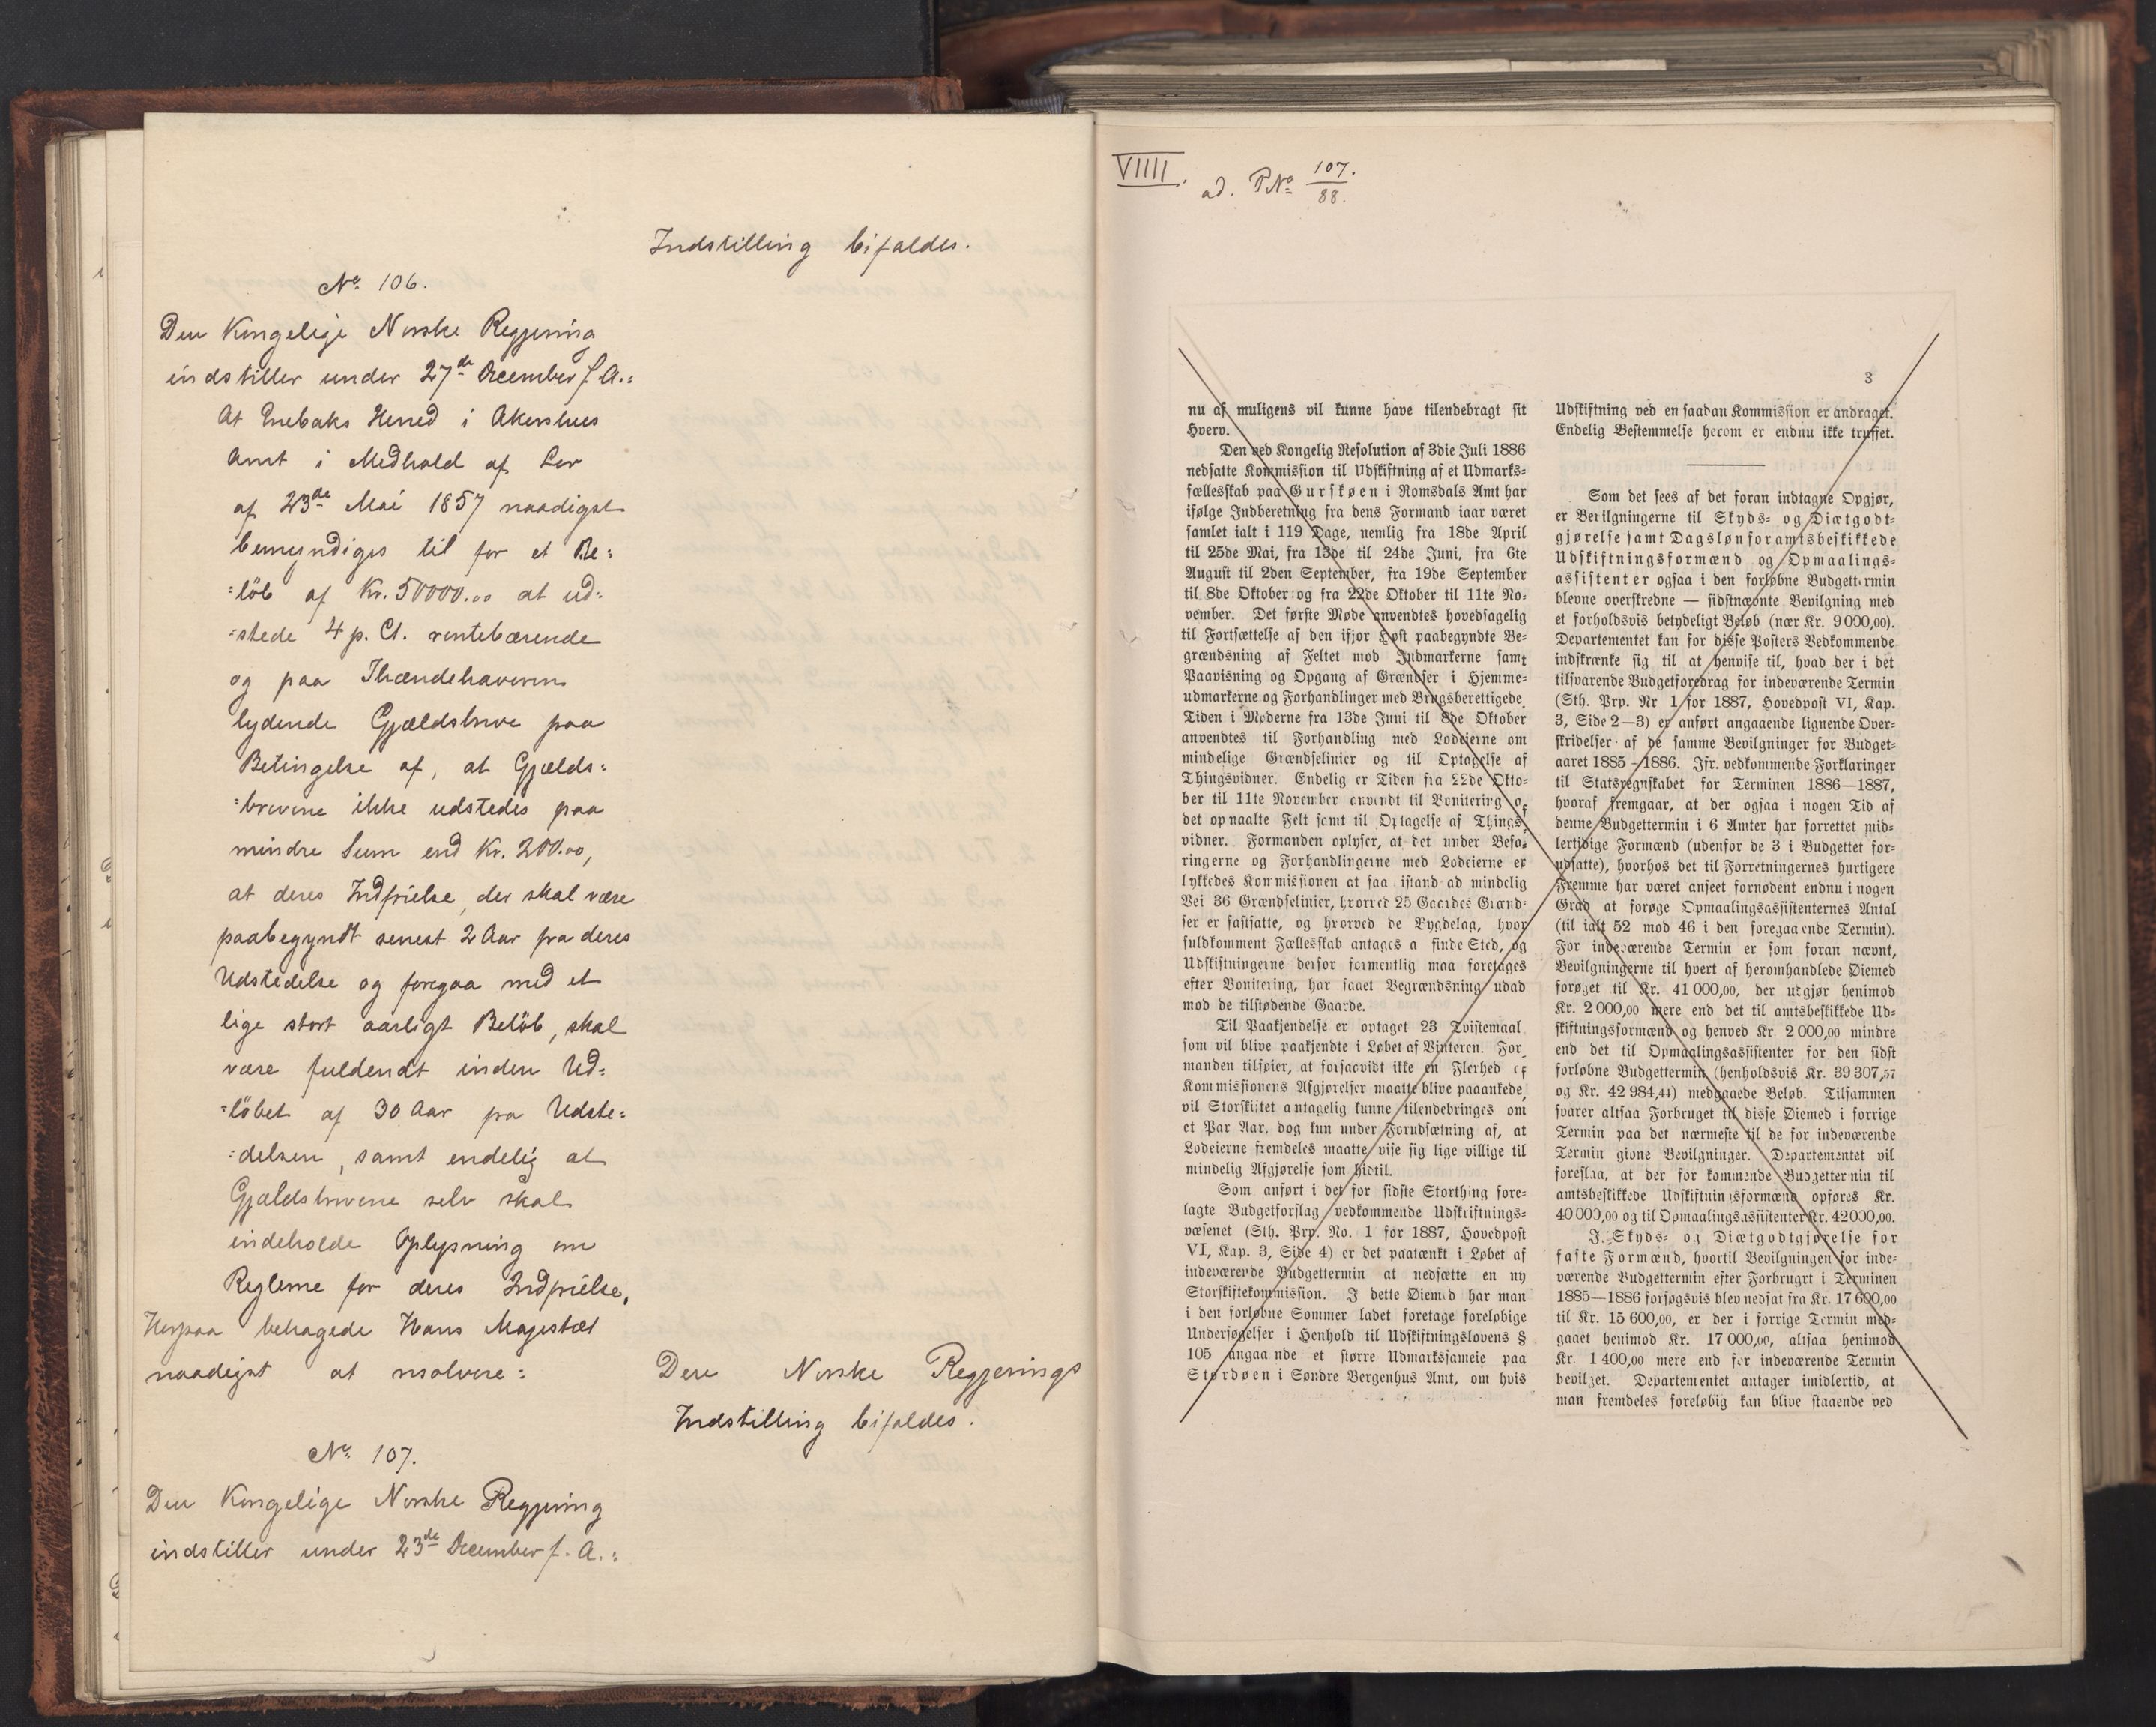 Indstilling bifaldes.
No 106.
Den Kongelige Norske Regjering
indstiller under 27de December f. A.:
At Enebaks Herred i Akershus
Amt i Medhold af Lov
af 23de Mai 1857 naadigst
bemyndiges til for et Be:
:löb af Kr. 50000.00 at ud:
:stede 4 p. Ct. rentebærende
og paa Ihændehaveren
lydende Gjældsbreve paa
Betingelse af, at Gjælds:
:brevene ikke udstedes paa
mindre Sum end Kr. 200.00,
at deres Indfrielse, der skal være
paabegyndt senest 2 Aar fra deres
Udstedelse og foregaa med et
lige stort aarligt Belöb, skal
være fuldendt inden Ud:
:löbet af 30 Aar fra Udste:
:delsen, samt endelig at
Gjældsbrevene selv skal
indeholde Oplysning om
Reglerne for deres Indfrielse,
Herpaa behagede Hans Majestæt
naadigst at resolvere:
Den Norske Regjerings
Indstilling bifaldes.
No 107.
Den Kongelige Norske Regjering
indstiller under 23de December f. A.:
VIIII.
ad. PNo 107./88.
3
nu af muligens vil kunne have tilendebragt sit
Hverv.
Den ved Kongelig Resolution af 3die Juli 1886
nedsatte Kommission til Udskiftning af et Udmarks-
fællesskab paa Gurskøen i Romsdals Amt har
ifølge Indberetning fra dens Formand iaar været
samlet ialt i 119 Dage, nemlig fra 18de April
til 25de Mai, fra 13de til 24de Juni, fra 6te
August til 2den September, fra 19de September
til 8de Oktober og fra 22de Oktober til 11te No-
vember. Det første Møde anvendtes hovedsagelig
til Fortsættelse af den ifjor Høst paabegyndte Be-
grændsning af Feltet mod Indmarkerne samt
Paavisning og Opgang af Grændser i Hjemme-
udmarkerne og Forhandlinger med Brugsberettigede
Tiden i Møderne fra 13de Juni til 8de Oktober
anvendtes til Forhandling med Lodeierne om
mindelige Grændselinier og til Optagelse af
Thingsvidner. Endelig er Tiden fra 22de Okto-
ber til 11te November anvendt til Bonitering of
det opmaalte Felt samt til Optagelse af Things-
vidner. Formanden oplyser, at det under Befa-
ringerne og Forhandlingerne med Lodeierne er
lykkedes Kommissionen at faa istand ad mindelig
Vei 36 Grændselinier, hvorved 25 Gaardes Grænd-
ser er fastsatte, og hvorved de Bygdelag, hvor
fuldkomment Fællesskab antages a finde Sted, og
Udskiftningerne derfor formentlig maa foretages
efter Bonitering, har faaet Begrændsning udad
mod de tilstødende Gaarde.
Til Paakjendelse er optaget 23 Tvistemaal
som vil blive paakjendte i Løbet af Vinteren. For
manden tilføier, at forsaavidt ikke en Flerhed af
Kommissionens Afgjørelser maatte blive paaankede,
vil Storskiftet antagelig kunne tilendebringes om
et Par Aar, dog kun under Forudsætning af, at
Lodeierne fremdeles maatte vise sig lige villige til
mindelig Afgjørelse som hidtil.
Som anført i det for sidste Storthing fore-
lagte Budgetforslag vedkommende Udskriftnings-
væsenet (Sth. Prp. No. 1 for 1887, Hovedpost
VI, Kap. 3, Side 4) er det paatænkt i Løbet af
indeværende Budgettermin at nedsætte en ny
Storskiftekommission. I dette Øiemed har man
i den forløbne Sommer ladet foretage foreløbige
Undersøgelser i Henhold til Udskiftningslovens §
105 angaaende et større Udmarkssameie paa
Stordøen i Søndre Bergenhus Amt, om hvis
Udskiftning ved en saadan Kommission er andraget.
Endelig Bestemmelse herom er endnu ikke truffet.
Som det sees af det foran indtagne Opgjør,
er Bevilgningerne til Skyds- og Diætgodt-
gjørelse samt Dagsløn for amtsbeskikkede
Udskiftningsformænd og Opmaalings-
assistenter ogsaa i den forløbne Budgettermin
blevne overskredne — sidstnævnte Bevilgning med
et forholdsvis betydeligt Beløb (nær Kr. 9 000,00).
Departementet kan for disse Posters Vedkommende
indskrænke sig til at henvise til, hvad der i det
tilsvarende Budgetforedrag for indeværende Termin
(Sth. Prp. Nr 1 for 1887, Hovedpost VI, Kap.
3, Side 2—3) er anført angaaende lignende Over-
skridelser af de samme Bevilgninger for Budget-
aaret 1885 - 1886. Jfr. vedkommende Forklaringer
til Statsregnskabet for Terminen 1886—1887,
hvoraf fremgaar, at der ogsaa i nogen Tid af
denne Budgettermin i 6 Amter har forrettet mid-
lertidige Formænd (udenfor de 3 i Budgettet for-
udsatte), hvorhos det til Forretningernes hurtigere
Fremme har været anseet fornødent endnu i nogen
Grad at forøge Opmaalingsassistenternes Antal
(til ialt 52 mod 46 i den foregaaende Termin).
For indeværende Termin er som foran nævnt,
Bevilgningerne til hvert af heromhandlede Øiemed
forøget til Kr. 41 000,00, der udgjør henimod
Kr. 2 000,00 mere end det til amtsbeskikkede Ud-
skiftningsformænd og henved Kr 2 000,00 mindre
end det til Opmaalingsassistenter for den sidst
forløbne Budgettermin (henholdsvis Kr. 39 307,57
og Kr. 42 984,44) medgaaede Beløb. Tilsammen
svarer altsaa Forbruget til disse Øiemed i forrige
Termin paa det nærmeste til de for indeværende
Termin givne Bevilgninger. Departementet vil
foreslaa, at der for kommende Budgettermin til
amtsbeskikkede Udskiftningsformænd opføres Kr.
40 000,00 og til Opmaalingsassistenter Kr. 42 000,00.
I Skyds- og Diætgodtgjørelse for
faste Formænd, hvortil Bevilgningen for inde-
værende Budgettermin efter Forbruget i Terminen
1885—1886 forsøgsvis blev nedsat fra Kr. 17 600,00
til Kr. 15 600,00, er der i forrige Termin med-
gaaet henimod Kr. 17 000,00, altsaa henimod
Kr. 1 400,00 mere end for indeværende Termin
bevilget. Departementet antager imidlertid, at
man fremdeles foreløbig kan blive staaende ved